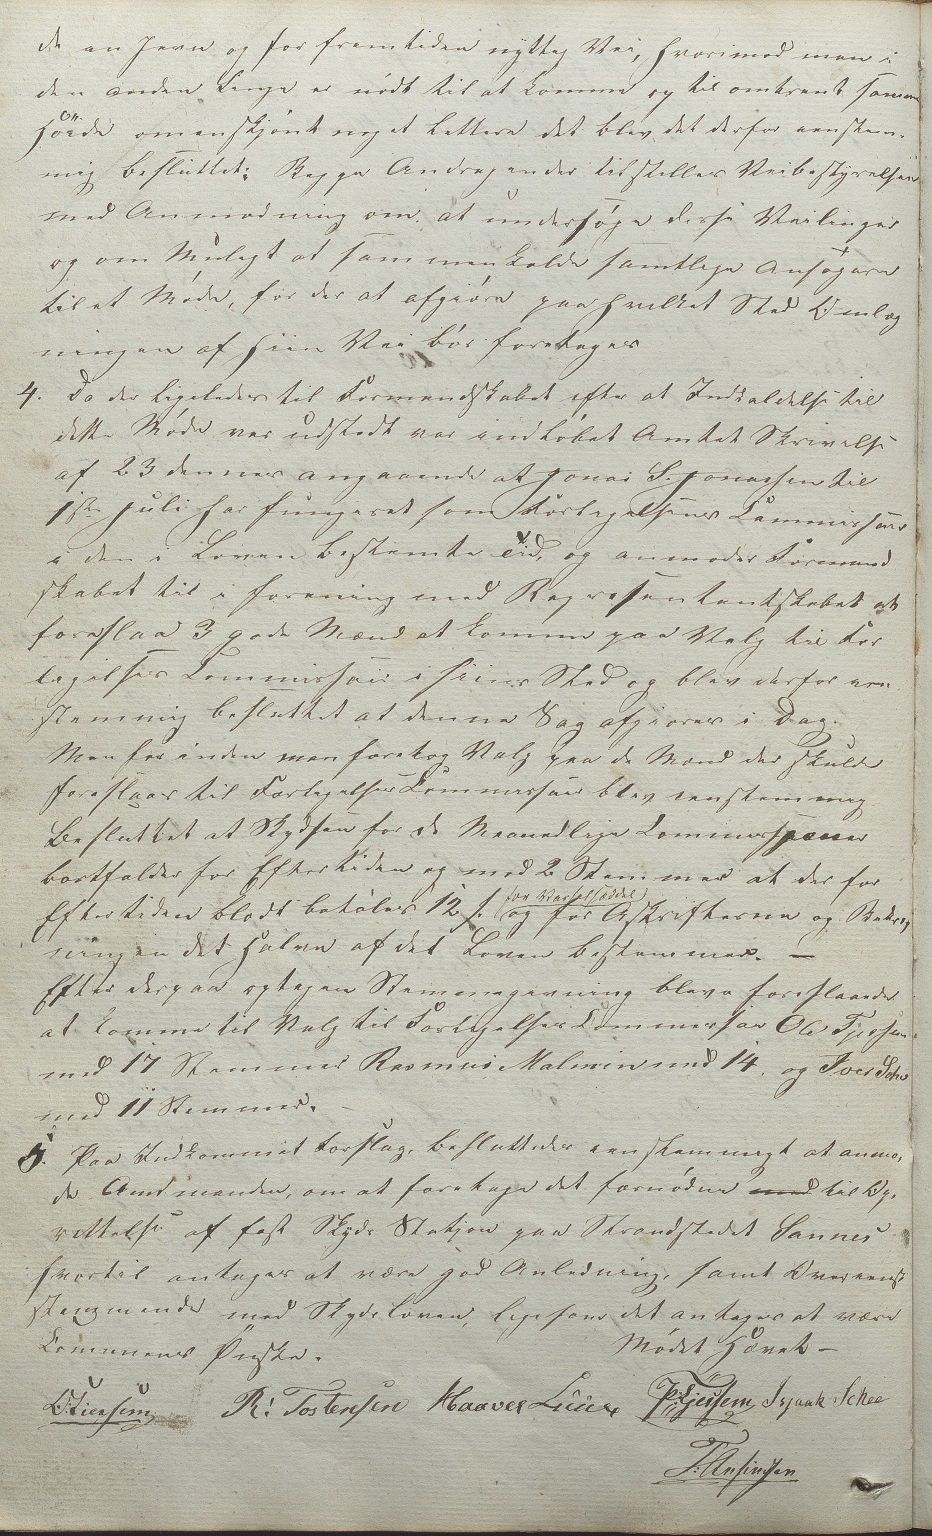 de en Jevn og for fremtiden nyttig Vei, hvorimod man i
den anden Linge er nødt til at komme og til omtrent samme
Høide omenskjønt noget lettere det blev det derfor eenstem-
mig besluttet: Begge Andragender tilstilles Veibestyrelsen
med Anmodning om, at undersøge disse Veilinger
og om Muligt at sammenkalde samtlige Ansøgere
til et Møde, for der at afgjøre paa hvilket Sted Omlæg
ningen af hiin Vei bør foretages
4. Da der ligeledes til Formandskabet efter at Indkaldelse til
dette Møde var udstedt var indløbet Amtets Skrivelse
af 23 dennes angaaende at Jonas S. Jonassen til
1ste Juli har fungeret som Forligelsens Commissær
i den i Loven bestemte Tid, og anmoder Formand
skabet til i forening med Repræsentantskabet at
foreslaa 3 gode Mænd at komme paa Valg til For
ligelses Commissair i hiins Sted og blev derfor een
stemmig besluttet at denne Sag afgjøres i Dag.
Men for inden man foretog Valg paa de Mænd der skulde
foreslaaes til Forligelses Commissair blev eenstemmig
besluttet at Skydsen for de Maanedlige Commissioner
bortfalder for Eftertiden og med 2 Stemmer at der for
Eftertiden blodt betales 12 s. for Varselsseddel og for Afskrifterne og Bekræf
ningen det halve af det Loven bestemmer. —
Efter derpaa optagen Stemmegivning bleve foreslaaede
at komme til Valg til Forligelses Commissair Ole Tjessem
med 17 Stemmer Rasmus Malmin med 14. og Iver Sche
med 11 Stemmer.
5. Paa Indkommet Forslag, besluttedes eenstemmigt at anmo-
de Amtmanden, om at foretage det fornødne med til Op-
rettelse af fast Skyds Station paa Strandstedet Sannes
hvortil antages at være god Anledning, samt Overeens
stemmende med Skydsloven, ligesom det antages at være
Communens Ønske. Mødet Hævet —
R: Tostensen Haaver Lura P. Tjessem Isaak Schee
T. Asfindsen